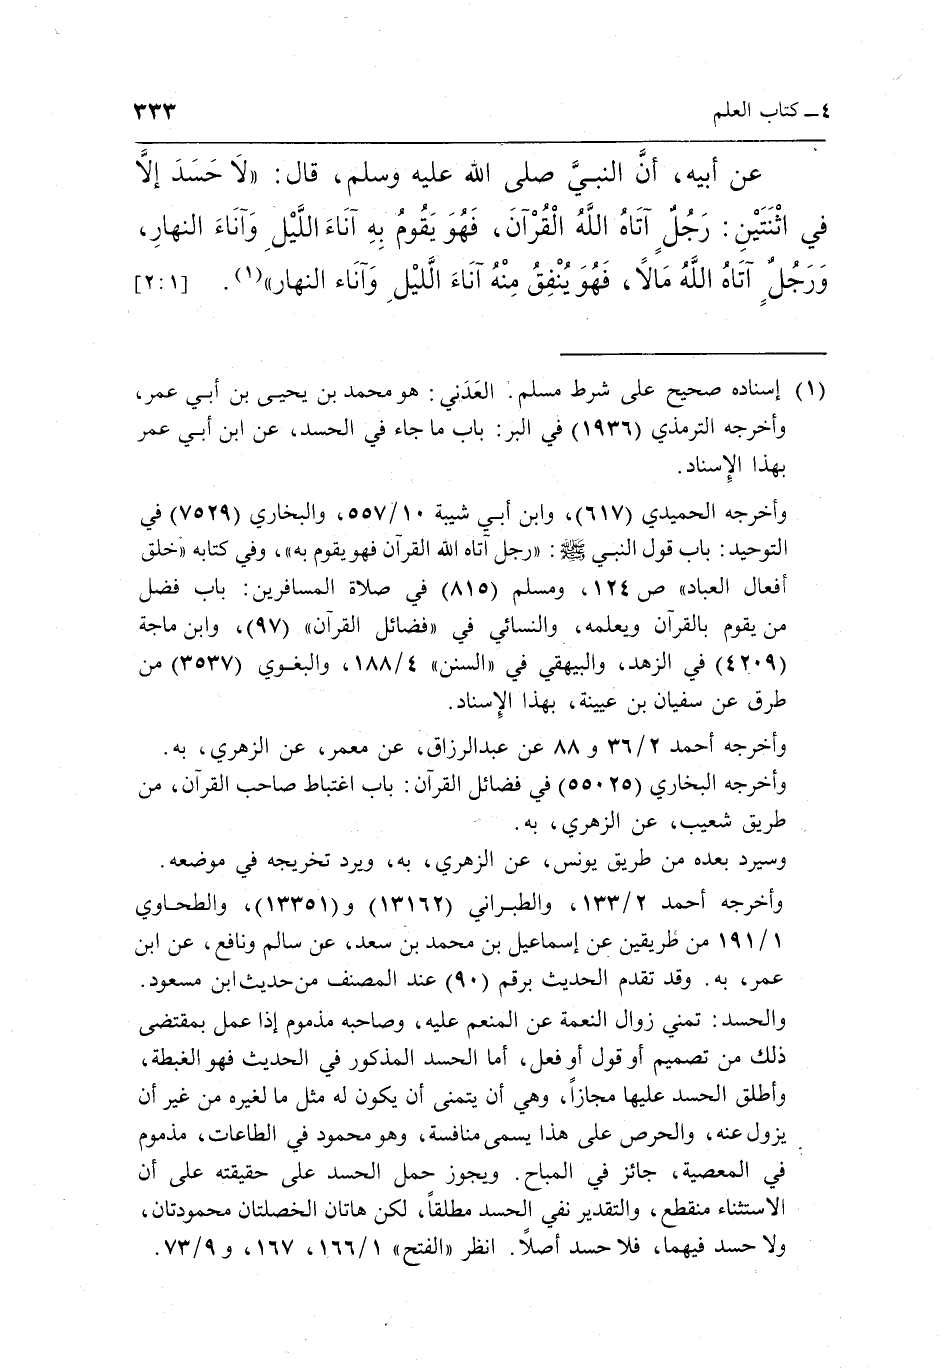 ٤ ـ كتاب العلم ٣٣٣
عن أبيه، أنَّ النبـيَّ صلى الله عليه وسلم، قال: «لَا حَسَدَ إلَّا
في اثْنَتَيْنِ: رَجُلٌ آتَاهُ اللَّهُ الْقُرْآنَ، فَهُوَ يَقُومُ بِهِ آنَاءَ اللَّيْلِ وَآنَاءَ النهارِ،
وَرَجُلٌ آتَاهُ اللَّهُ مَالًا، فَهُوَ يُنْفِقُ مِنْهُ آنَاءَ الَّليْلِ وَآنَاء النهار»(١). [٢:١]
(١) إسناده صحيح على شرط مسلم. العَدَني: هو محمد بن يحيـى بن أبـي عمر،
وأخرجه الترمذي (١٩٣٦) في البر: باب ما جاء في الحسد، عن ابن أبـي عمر
بهذا الإسناد.
وأخرجه الحميدي (٦١٧)، وابن أبـي شيبة ٥٥٧/١٠، والبخاري (٧٥٢٩) في
التوحيد: باب قول النبـي ﷺ: «رجل آتاه الله القرآن فهو يقوم به»، وفي كتابه «خلق
أفعال العباد» ص ١٢٤، ومسلم (٨١٥) في صلاة المسافرين: باب فضل
من يقوم بالقرآن ويعلمه، والنسائي في «فضائل القرآن» (٩٧)، وابن ماجة
(٤٢٠٩) في الزهد، والبيهقي في «السنن» ١٨٨/٤، والبغـوي (٣٥٣٧) من
طرق عن سفيان بن عيينة، بهذا الإسناد.
وأخرجه أحمد ٣٦/٢ و ٨٨ عن عبدالرزاق، عن معمر، عن الزهري، به.
وأخرجه البخاري (٥٥٠٢٥) في فضائل القرآن: باب اغتباط صاحب القرآن، من
طريق شعيب، عن الزهري، به.
وسيرد بعده من طريق يونس، عن الزهري، به، ويرد تخريجه في موضعه.
وأخرجه أحمد ١٣٣/٢، والطبـراني (١٣١٦٢) و(١٣٣٥١)، والطحـاوي
١٩١/١ من طريقين عن إسماعيل بن محمد بن سعد، عن سالم ونافع، عن ابن
عمر، به. وقد تقدم الحديث برقم (٩٠) عند المصنف من حديث ابن مسعود.
والحسد: تمني زوال النعمة عن المنعم عليه، وصاحبه مذموم إذا عمل بمقتضى
ذلك من تصميم أو قول أو فعل، أما الحسد المذكور في الحديث فهو الغبطة،
وأطلق الحسد عليها مجازاً، وهي أن يتمنى أن يكون له مثل ما لغيره من غير أن
يزول عنه، والحرص على هذا يسمى منافسة، وهو محمود في الطاعات، مذموم
في المعصية، جائز في المباح. ويجوز حمل الحسد على حقيقته على أن
الاستثناء منقطع، والتقدير نفي الحسد مطلقاً، لكن هاتان الخصلتان محمودتان،
ولا حسد فيهما، فلا حسد أصلًا. انظر «الفتح» ١٦٦/١، ١٦٧، و ٧٣/٩.